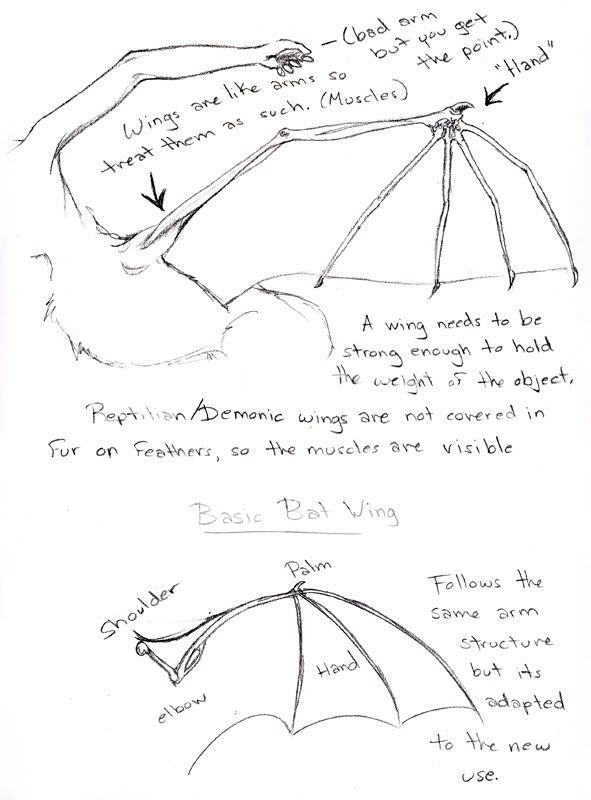 (bad arm
but you get
the point.)
"Hand"
Wings are like arms so
treat them as such. (Muscles)
A wing needs to be
strong enough to hold
the weight of the object.
Reptilian/Demonic wings are not covered in
Fur on Feathers, so the muscles are visible
Basic Bat Wing
Palm
Shoulder
Hand
elbow
Follows the
same arm
structure
but its
adapted
to the new
use.